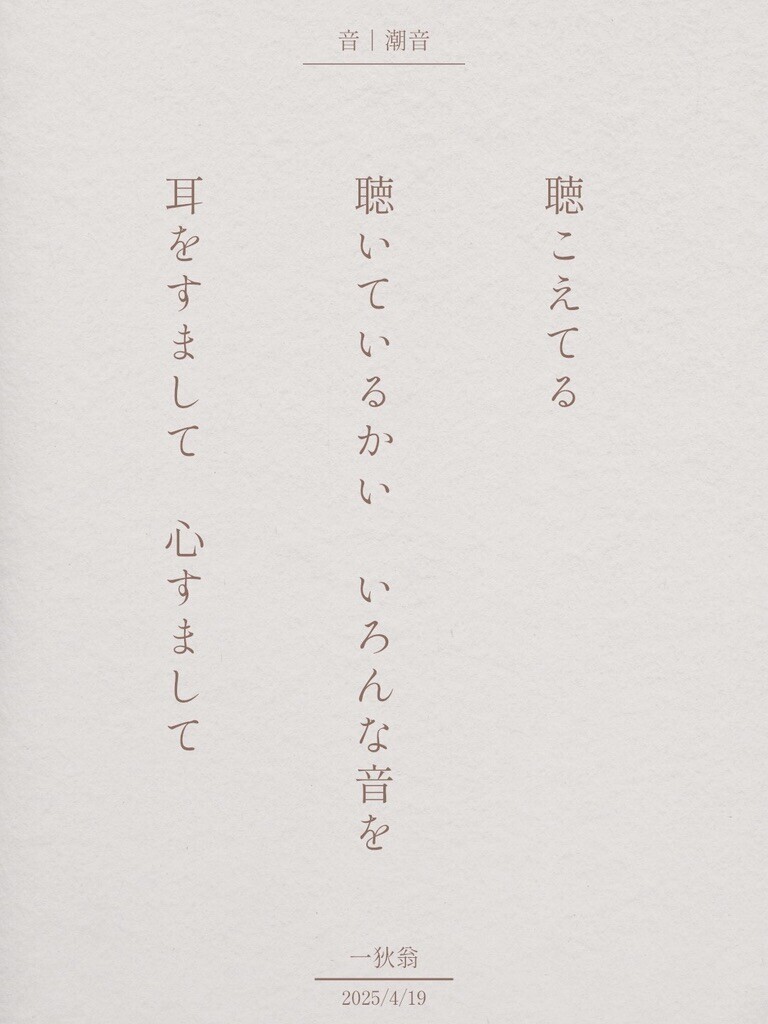 音｜潮音
聴こえてる
聴いているかい　いろんな音を
耳をすまして　心すまして
一狄翁
2025/4/19